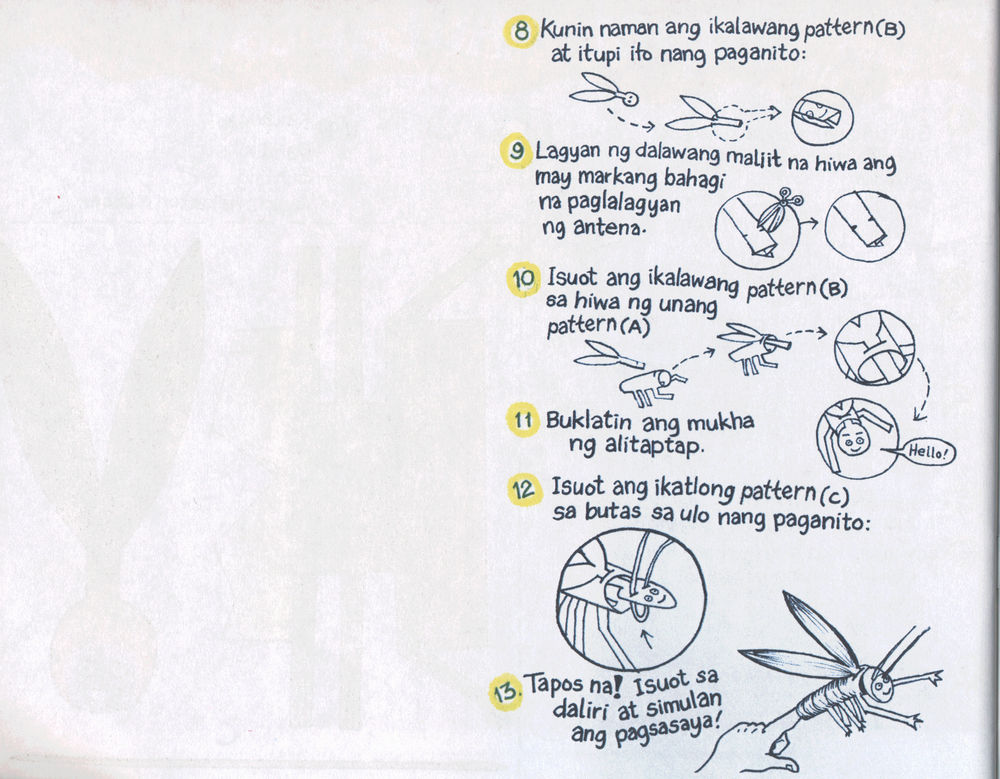 8 Kunin naman ang ikalawang pattern (B)
at itupi ito nang paganito:
9 Lagyan ng dalawang maliit na hiwa ang
may markang bahagi
na paglalagyan
ng antena.
10 Isuot ang ikalawang pattern (B)
sa hiwa ng unang
pattern (A)
11 Buklatin ang mukha
ng alitaptap.
Hello!
12 Isuot ang ikatlong pattern (c)
sa butas sa ulo nang paganito:
13. Tapos na! Isuot sa
daliri at simulan
ang pagsasaya!